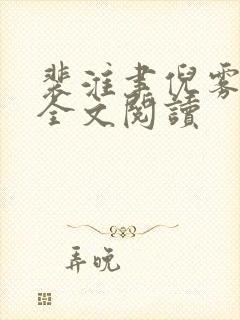 裴淮聿倪雾
全文閱讀
弄晚